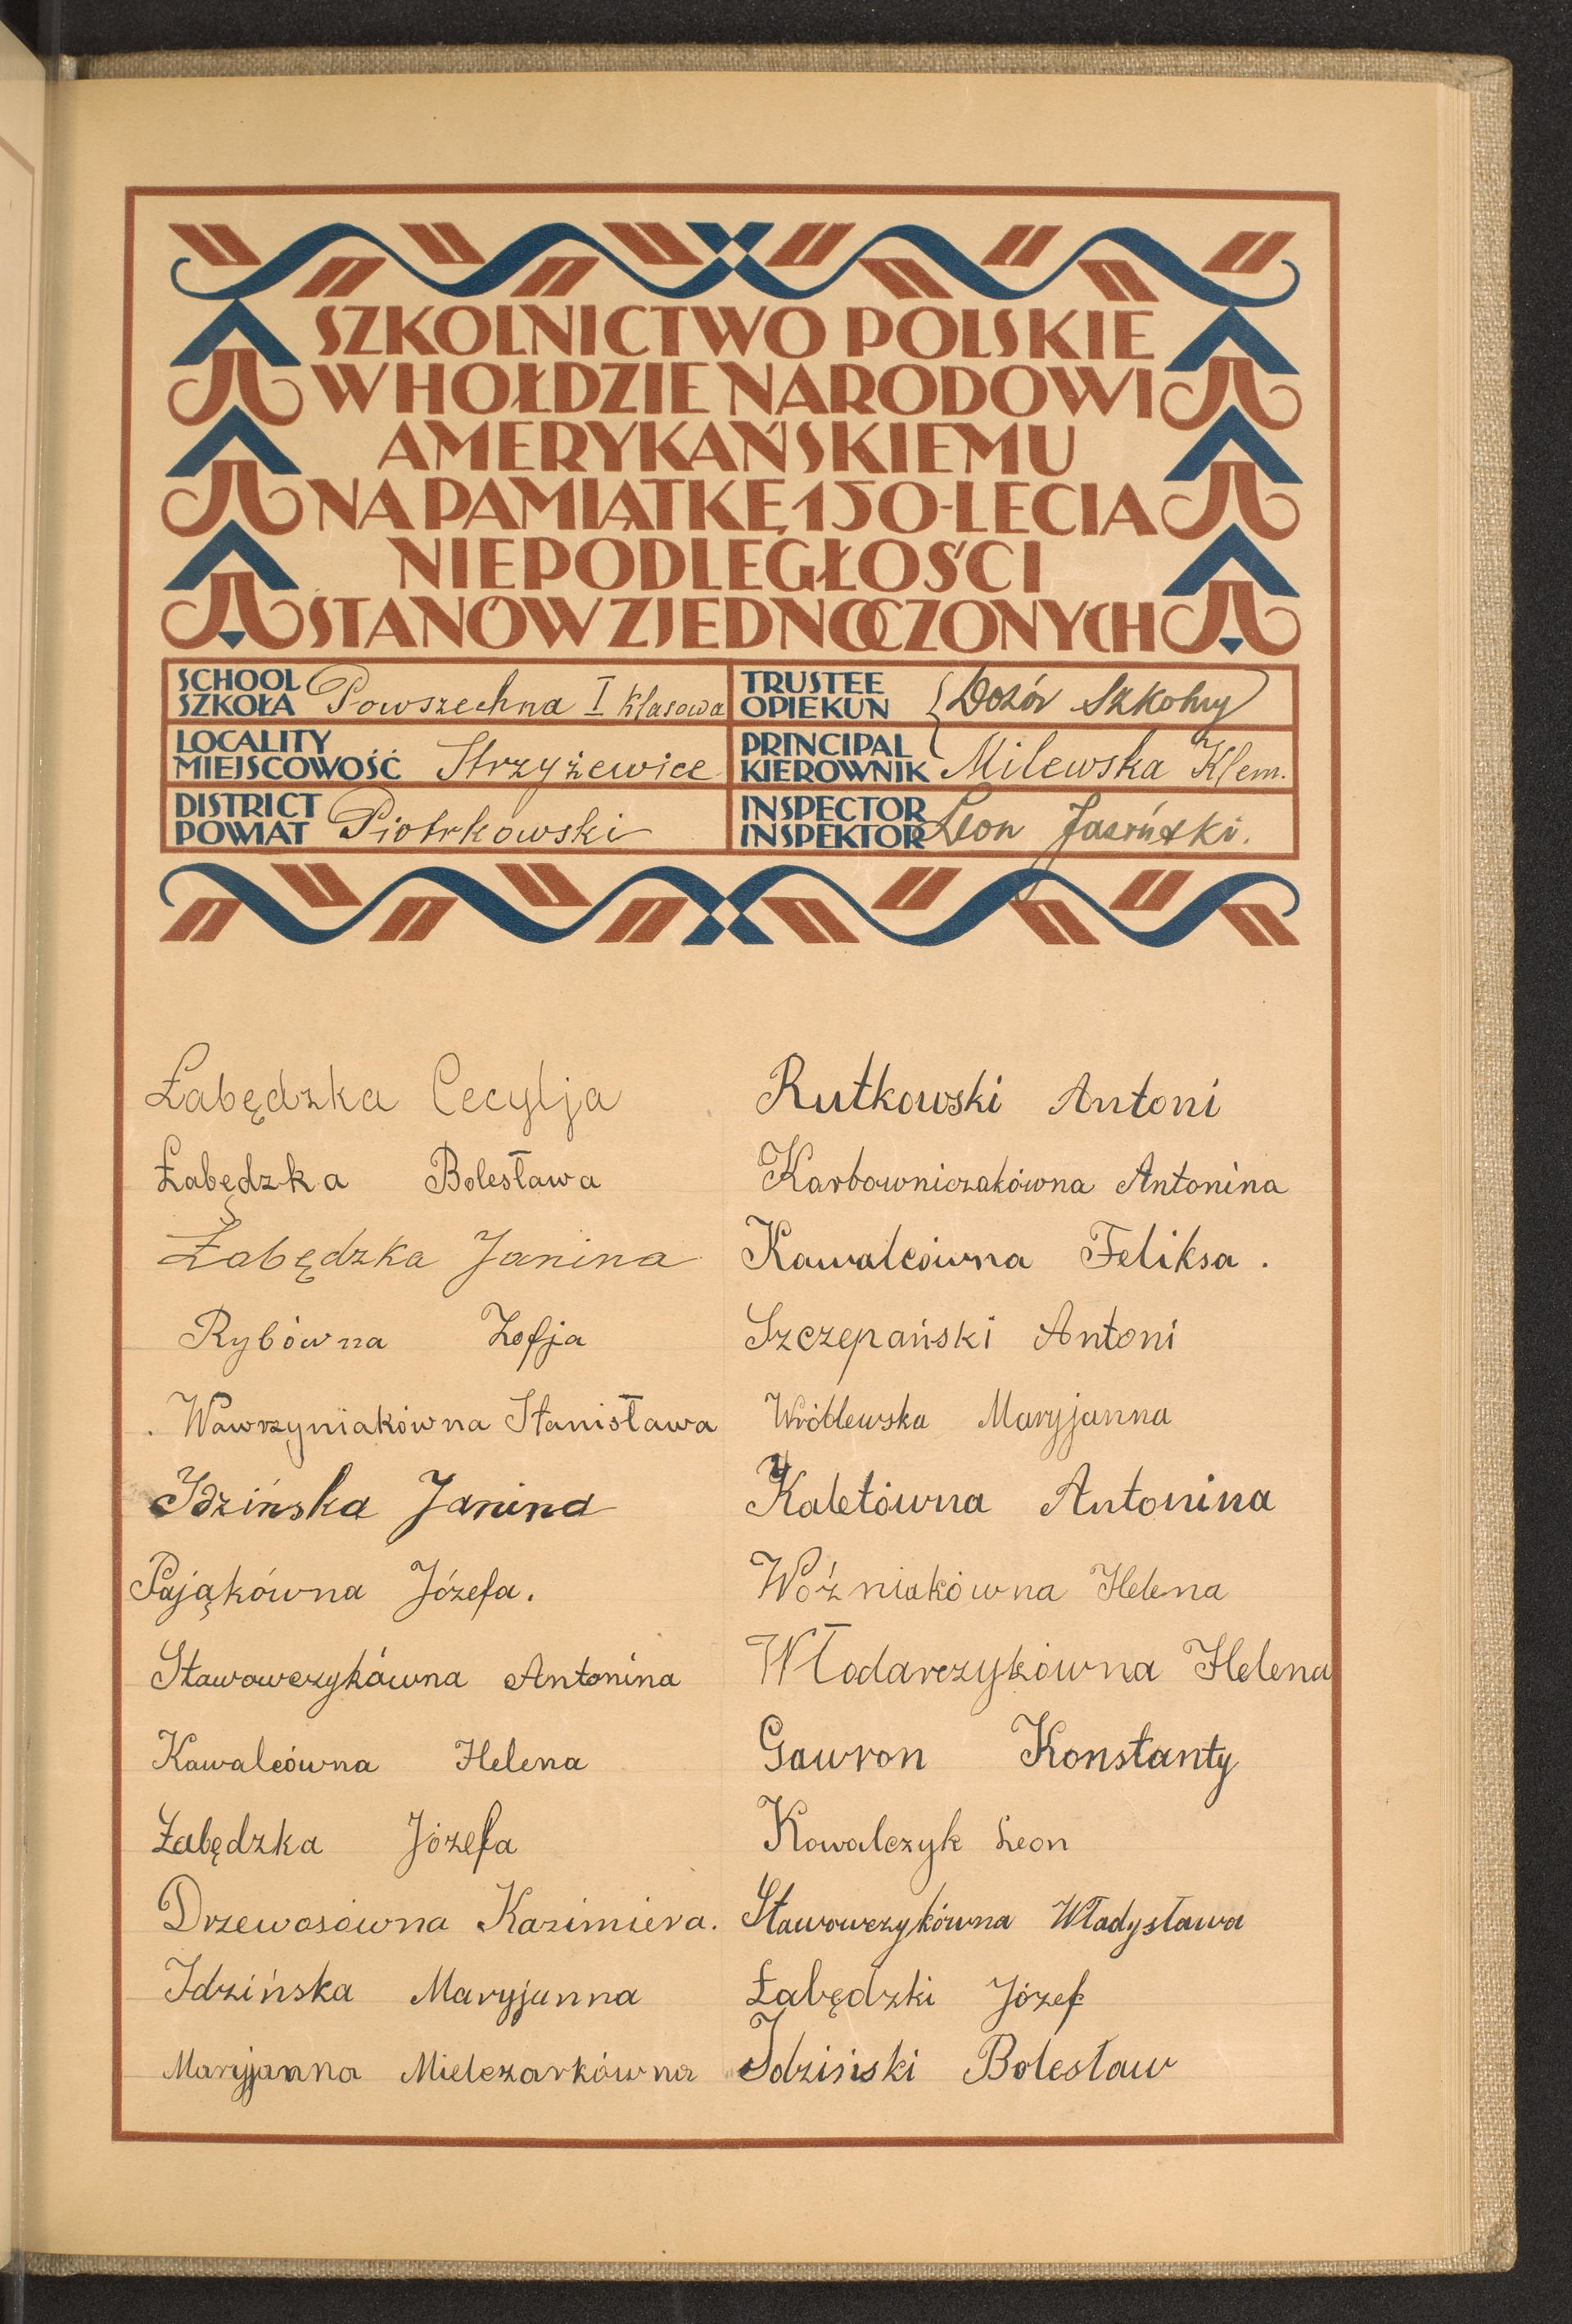 SZKOLNICTWO POLSKIE
W HOŁDZIE NARODOWI
AMERYKAŃSKIEMU
NA PAMIĄTKĘ 150-LECIA
NIEPODLEGŁOŚCI
STANÓW ZJEDNOCZONYCH
SCHOOL
SZKOŁA Powszechna I klasowa
TRUSTEE
OPIEKUN Dozór Szkolny
LOCALITY
MIEJSCOWOŚĆ Strzyżewice
PRINCIPAL
KIEROWNIK Milewska Klem.
DISTRICT
POWIAT Piotrkowski
INSPECTOR
INSPEKTOR Leon
Łabędzka Cecylja
Łabędzka Bolesława
Łabędzka Janina
Rybówna Zofja
Wawrzyniakówna Stanisława
Idzińska Janina
Pająkówna Józefa.
Stawowczykówna Antonina
Kawalcówna Helena
Łabędzka Józefa
Drzewosówna Kazimiera.
Idzińska Maryjanna
Maryjanna Mielczarkówna
Rutkowski Antoni
Karbowniczakówna Antonina
Kawalcówna Feliksa.
Szczepański Antoni
Wróblewska Maryjanna
Kaletówna Antonina
Woźniakówna Helena
Włodarczykówna Helena
Gawron Konstanty
Kowalczyk Leon
Stawowczykówna Władysława
Łabędzki Józef
Idziński Bolesław